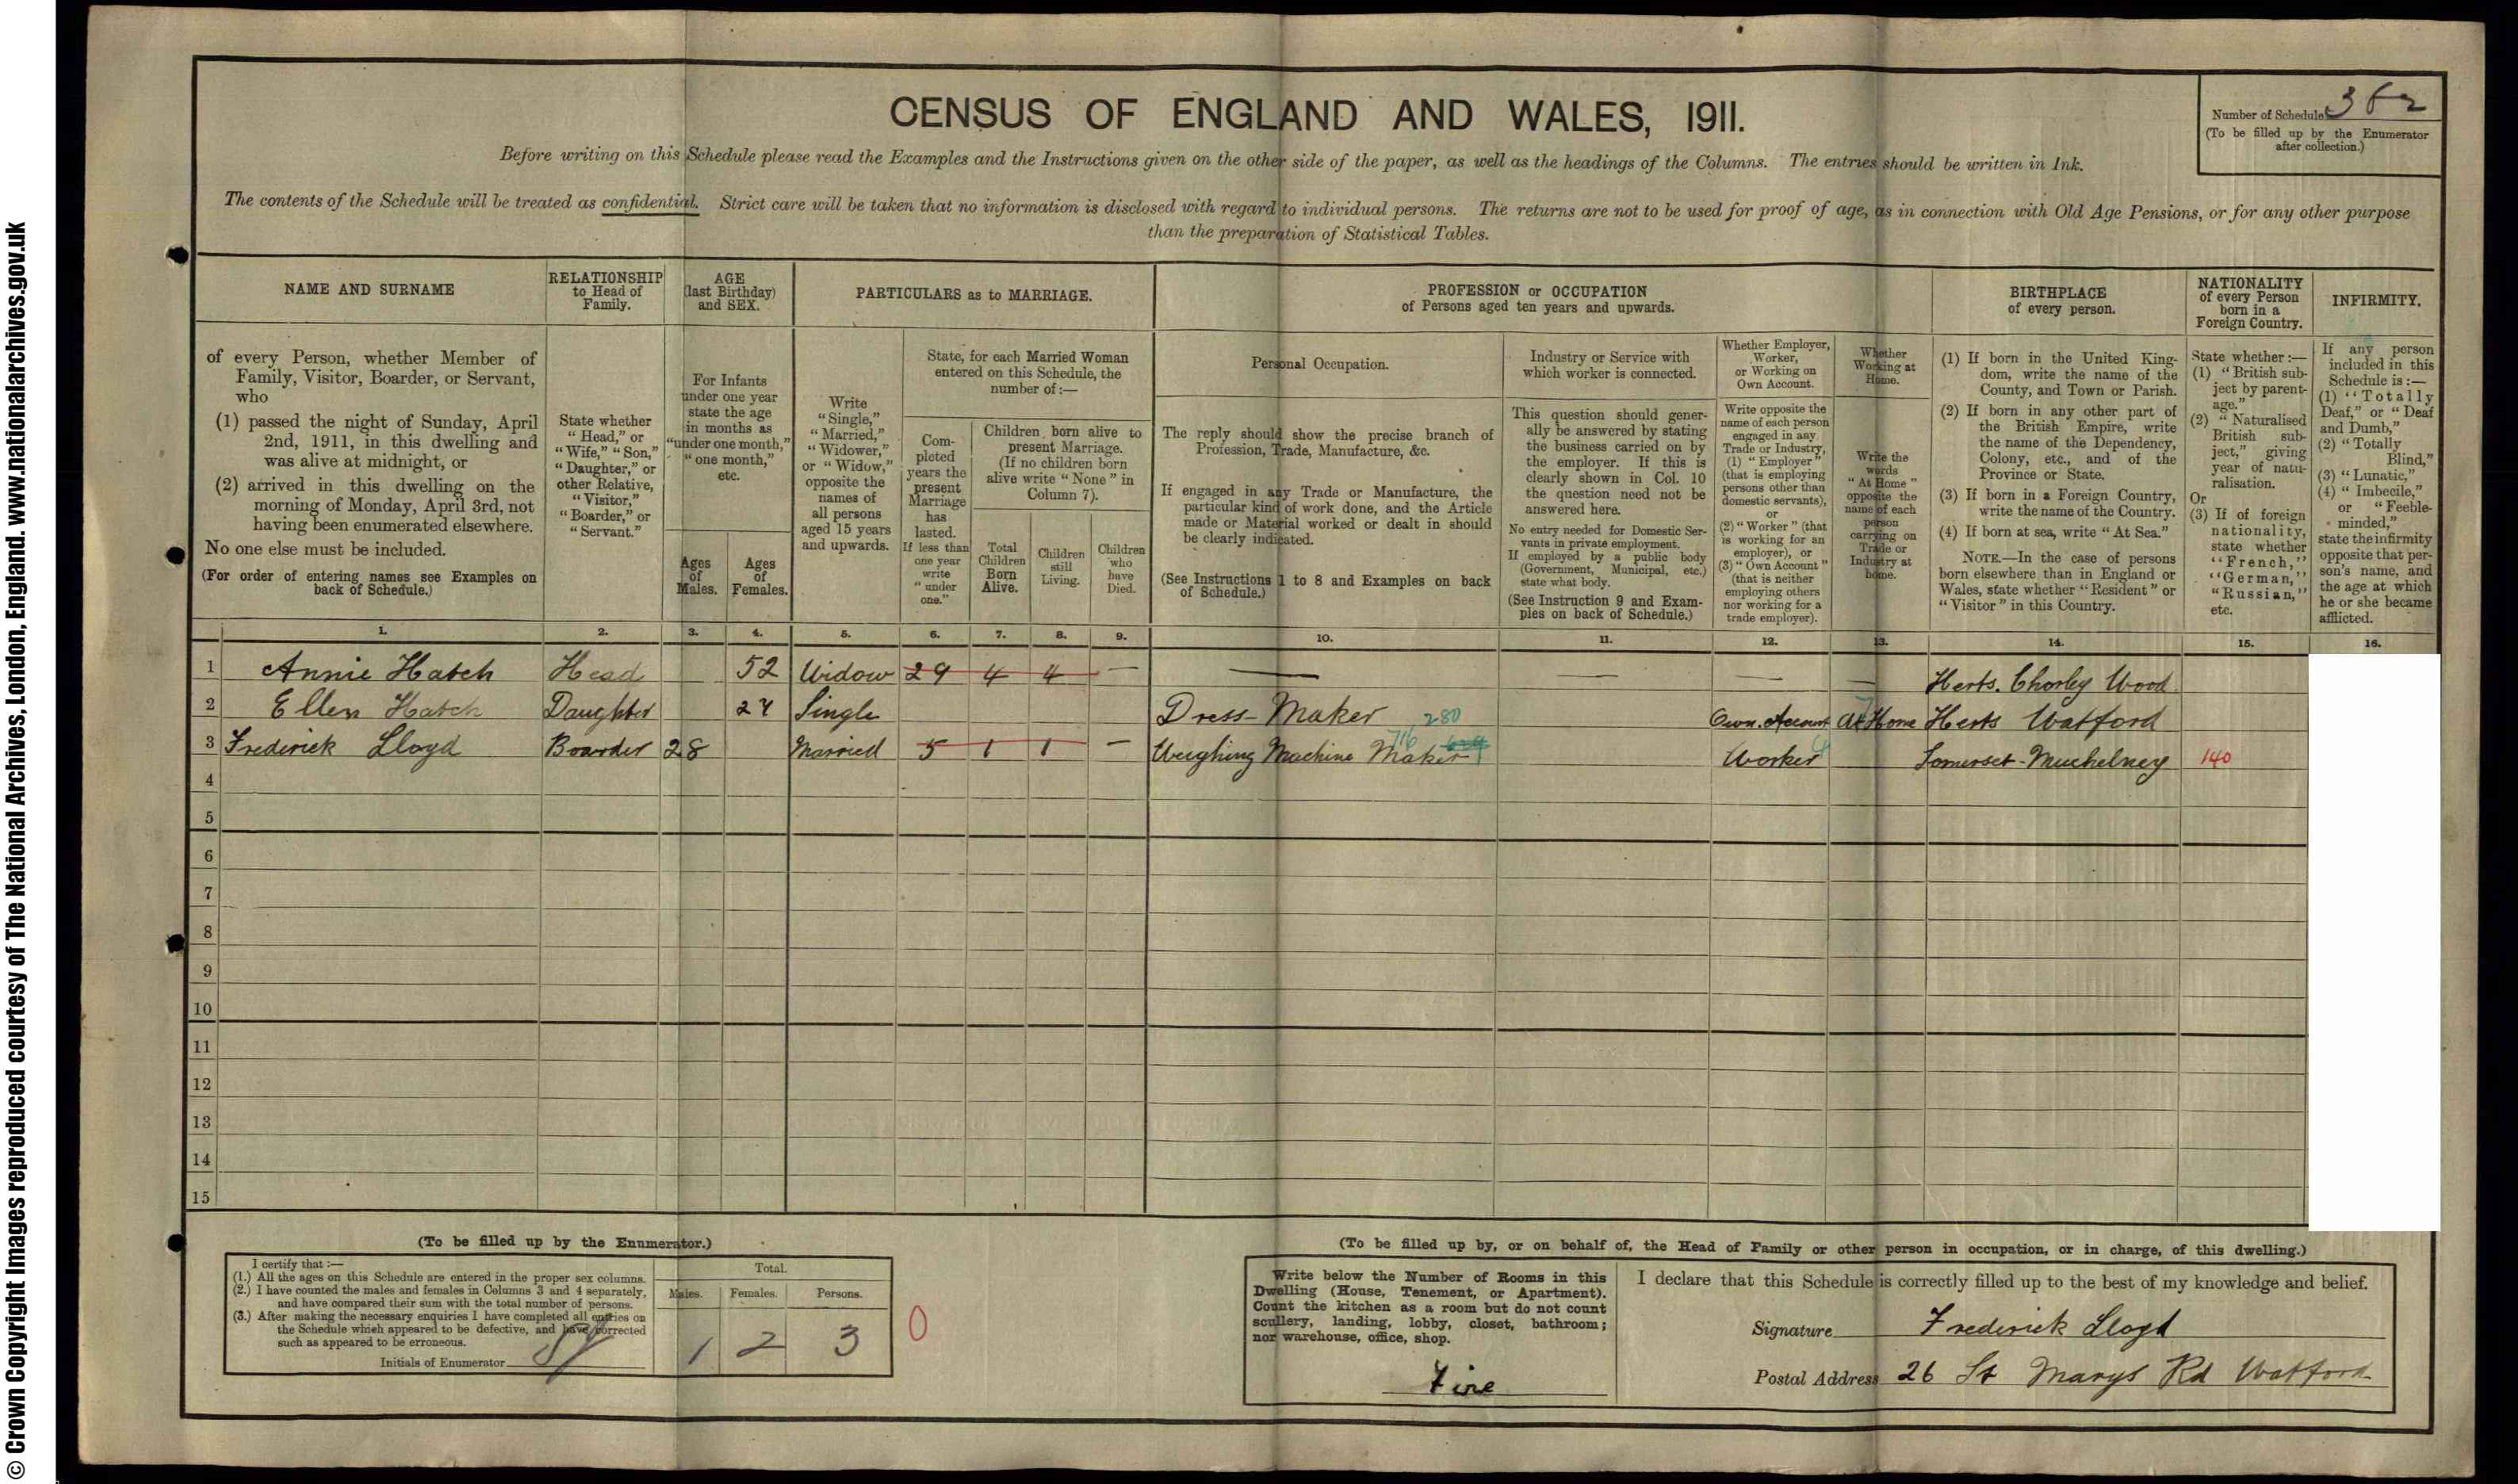 © Crown Copyright Images reproduced courtesy of The National Archives, London, England. www.nationalarchives.gov.uk
CENSUS OF ENGLAND AND WALES, 1911.
Number of Schedule 362
(To be filled up by the Enumerator
after collection.)
Before writing on this Schedule please read the Examples and the Instructions given on the other side of the paper, as well as the headings of the Columns. The entries should be written in Ink.
The contents of the Schedule will be treated as confidential. Strict care will be taken that no information is disclosed with regard to individual persons. The returns are not to be used for proof of age, as in connection with Old Age Pensions, or for any other purpose
than the preparation of Statistical Tables.
NAME AND SURNAME
of every Person, whether Member of
Family, Visitor, Boarder, or Servant,
who
(1) passed the night of Sunday, April
2nd, 1911, in this dwelling and
was alive at midnight, or
(2) arrived in this dwelling on the
morning of Monday, April 3rd, not
having been enumerated elsewhere.
No one else must be included.
(For order of entering names see Examples on
back of Schedule.)
RELATIONSHIP
to Head of
Family.
State whether
"Head," or
"Wife," "Son,"
"Daughter," or
other Relative,
"Visitor,"
"Boarder," or
"Servant."
AGE
(last Birthday)
and SEX.
For Infants
under one year
state the age
in months as
"under one month,"
"one month,"
etc.
Ages
of
Males.
Ages
of
Females.
PARTICULARS as to MARRIAGE.
Write
"Single,"
"Married,"
"Widower,"
or "Widow,"
opposite the
names of
all persons
aged 15 years
and upwards.
State, for each Married Woman
entered on this Schedule, the
number of:—
Com-
pleted
years the
present
Marriage
has
lasted.
If less than
one year
write
"under
one."
Children born alive to
present Marriage.
(If no children born
alive write "None" in
Column 7).
Total
Children
Born
Alive.
Children
still
Living.
Children
who
have
Died.
PROFESSION or OCCUPATION
of Persons aged ten years and upwards.
Personal Occupation.
The reply should show the precise branch of
Profession, Trade, Manufacture, &c.
If engaged in any Trade or Manufacture, the
particular kind of work done, and the Article
made or Material worked or dealt in should
be clearly indicated.
(See Instructions 1 to 8 and Examples on back
of Schedule.)
Industry or Service with
which worker is connected.
This question should gener-
ally be answered by stating
the business carried on by
the employer. If this is
clearly shown in Col. 10
the question need not be
answered here.
No entry needed for Domestic Ser-
vants in private employment.
If employed by a public body
(Government, Municipal, etc.)
state what body.
(See Instruction 9 and Exam-
ples on back of Schedule.)
Whether Employer,
Worker,
or Working on
Own Account.
Write opposite the
name of each person
engaged in any
Trade or Industry,
(1) "Employer"
(that is employing
persons other than
domestic servants),
or
(2) "Worker" (that
is working for an
employer), or
(3) "Own Account"
(that is neither
employing others
nor working for a
trade employer).
Whether
Working at
Home.
Write the
words
"At Home"
opposite the
name of each
person
carrying on
Trade or
Industry at
home.
BIRTHPLACE
of every person.
(1) If born in the United King-
dom, write the name of the
County, and Town or Parish.
(2) If born in any other part of
the British Empire, write
the name of the Dependency,
Colony, etc., and of the
Province or State.
(3) If born in a Foreign Country,
write the name of the Country.
(4) If born at sea, write "At Sea."
NOTE.—In the case of persons
born elsewhere than in England or
Wales, state whether "Resident" or
"Visitor" in this Country.
NATIONALITY
of every Person
born in a
Foreign Country.
State whether:—
(1) "British sub-
ject by parent-
age."
(2) "Naturalised
British sub-
ject," giving
year of natu-
ralisation.
Or
(3) If of foreign
nationality,
state whether
"French,"
"German,"
"Russian,"
etc.
INFIRMITY.
If any person
included in this
Schedule is:—
(1) "Totally
Deaf," or "Deaf
and Dumb,"
(2) "Totally
Blind,"
(3) "Lunatic,"
(4) "Imbecile,"
or "Feeble-
minded,"
state the infirmity
opposite that per-
son's name, and
the age at which
he or she became
afflicted.
1. 2. 3. 4. 5. 6. 7. 8. 9. 10. 11. 12. 13. 14. 15. 16.
1 Annie Hatch Head 52 Widow 29 4 4 — — — — — Herts. Chorley Wood
2 Ellen Hatch Daughter 24 Single Dress-Maker 280 Own Account At Home Herts Watford
3 Frederick Lloyd Boarder 28 Married 5 1 1 — Weighing Machine Maker 716 Worker Somerset-Muchelney 140
4
5
6
7
8
9
10
11
12
13
14
15
(To be filled up by the Enumerator.)
I certify that:—
(1.) All the ages on this Schedule are entered in the proper sex columns.
(2.) I have counted the males and females in Columns 3 and 4 separately,
and have compared their sum with the total number of persons.
(3.) After making the necessary enquiries I have completed all entries on
the Schedule which appeared to be defective, and have corrected
such as appeared to be erroneous.
Initials of Enumerator
Total.
Males. Females. Persons.
1 2 3
0
(To be filled up by, or on behalf of, the Head of Family or other person in occupation, or in charge, of this dwelling.)
Write below the Number of Rooms in this
Dwelling (House, Tenement, or Apartment).
Count the kitchen as a room but do not count
scullery, landing, lobby, closet, bathroom;
nor warehouse, office, shop.
Five
I declare that this Schedule is correctly filled up to the best of my knowledge and belief.
Signature Frederick Lloyd
Postal Address 26 St Marys Rd Watford